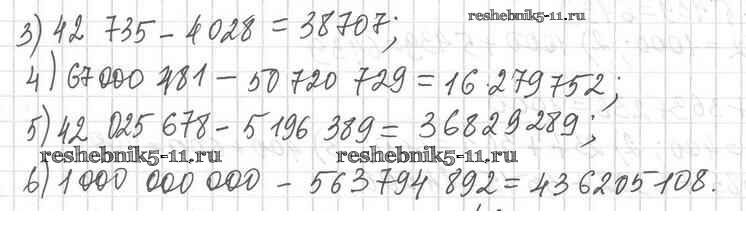 reshebnik5-11.ru
3) 42 735 - 4028 = 38707;
4) 67000 481 - 50 720 729 = 16 279 752;
5) 42 025 678 - 5 196 389 = 36829289;
reshebnik5-11.ru reshebnik5-11.ru
6) 1 000 000 000 - 563 794 892 = 436205108.